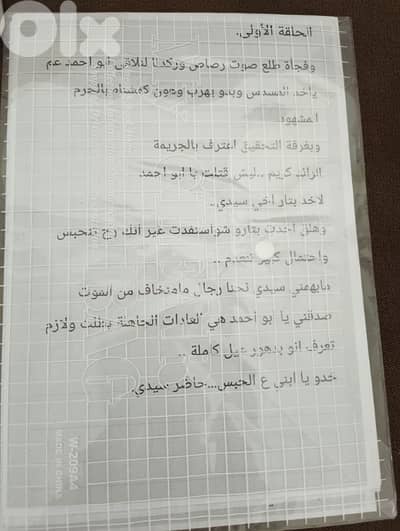 olx
الحلقة الأولى.
وفجأة طلع صوت رصاص وركدنا لنلاقي أبو احمد عم
ياخد المسدس وبدو يهرب وهون كمشناه بالجرم
المشهود
وبغرفة التحقيق اعترف بالجريمة
الرائد كريم ..ليش قتلت يا ابو احمد
لاخد بتار اخي سيدي..
وهلق اخدت بتارو شو استفدت غير انك رح تنحبس
واحتمال كبير تنعدم ..
مابهمني سيدي نحنا رجال مامنخاف من الموت
صدقني يا ابو أحمد هي العادات الجاهلة بطلت ولازم
تعرف انو بتهدر عيل كاملة ..
خدو يا ابني ع الحبس...حاضر سيدي.
W-209A4
MADE IN CHINA